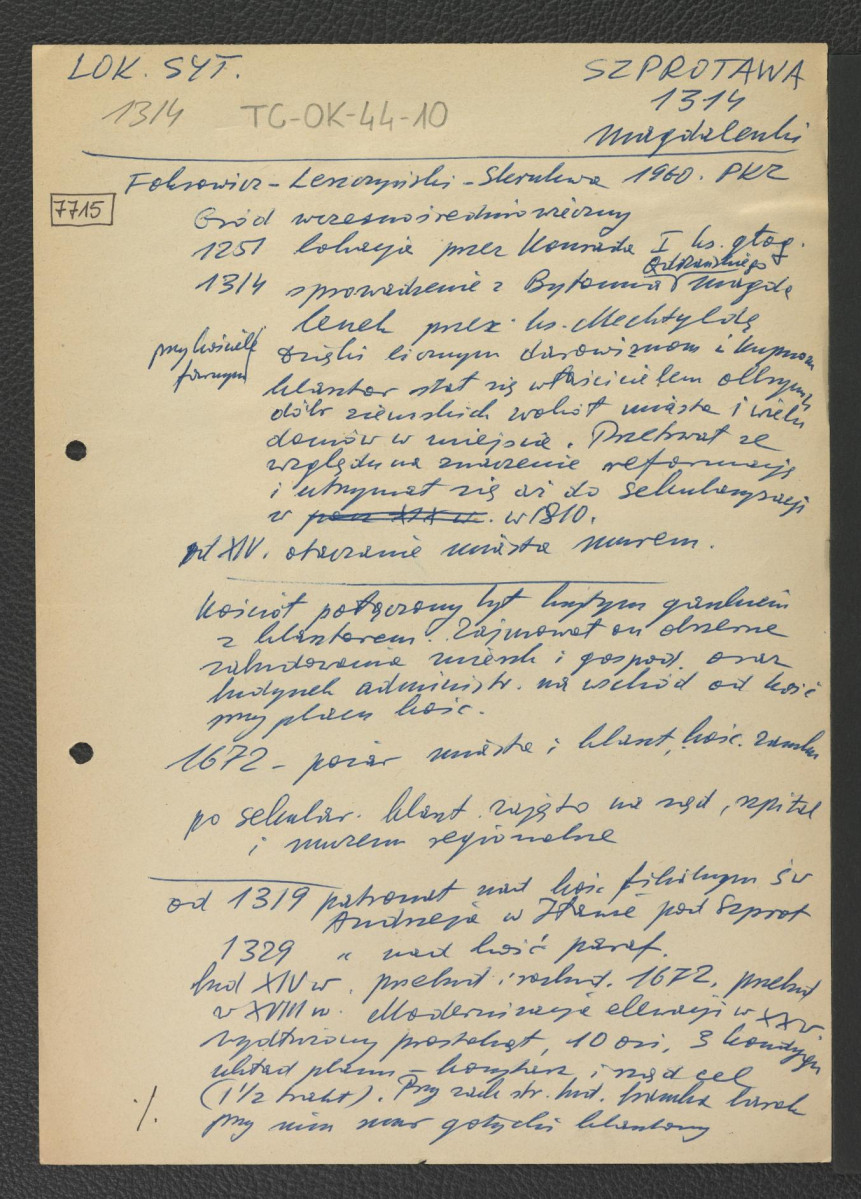 LOK. SYT.
SZPROTAWA
1314
1314 TG-OK-44-10
Magdalenki
Foksowicz - Leszczyński - Skrukwa 1960. PKZ
7715
Gród wczesnośredniowieczny
1251 lokacja przez Konrada I ks. głog.
Odrzańskiego
1314 sprowadzenie z Bytomia magda
lenek przez ks. Mechtyldę
przy kościele
farnym
Dzięki licznym darowiznom i kupnom
klasztor stał się właścicielem olbrzymich
dóbr ziemskich wokół miasta i wielu
domów w mieście. Przetrwał ze
względu na znaczenie reformację
i utrzymał się aż do sekularyzacji
w pocz XIX w. w 1810.
od XIV. otaczanie miasta murem.
Kościół połączony był krytym gankiem
z klasztorem. Zajmował on obszerne
zabudowania mieszk i gospod. oraz
budynek administr. na wschód od kość
przy placu kośc.
1672 - pożar miasta i klaszt, kośc. zamku
po sekular. klaszt. zajęto na sąd, szpital
i muzeum regionalne
od 1319 patronat nad kośc filialnym św
Andrzeja w Iławie pod Szprot
1329 " nad kość paraf.
bud XIV w. przebud i rozbud. 1672, przebud
w XVIII w. Modernizacja elewacji w XX w.
wydłużony prostokąt, 10 osi, 3 kondygn
układ planu - korytarz i rząd cel
(1 1/2 trakt). Przy zach str. bud. bramka barok
przy nim mur gotycki klasztorny
./.